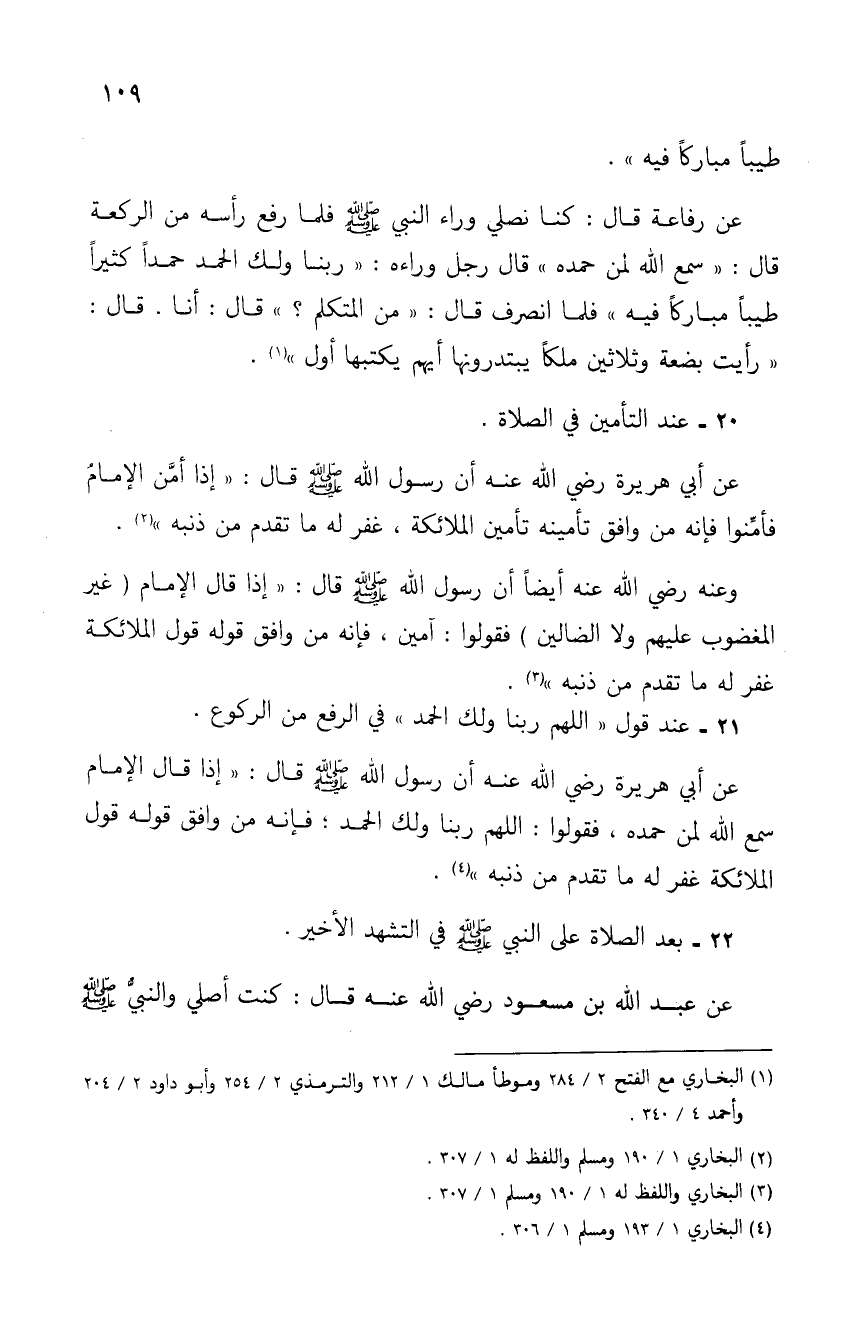 ١٠٩
طيباً مباركاً فيه » .
عن رفاعـة قـال : كنـا نصلي وراء النبي ﷺ فلمـا رفع رأسـه من الركعـة
قال : « سمع الله لمن حمده » قال رجل وراءه : « ربنـا ولـك الحمـد حمـداً كثيراً
طيباً مبـاركاً فيـه » فلمـا انصرف قـال : « من المتكلم ؟ » قـال : أنـا . قـال :
« رأيت بضعة وثلاثين ملكاً يبتدرونها أيهم يكتبها أول »(١) .
٢٠ ـ عند التأمين في الصلاة .
عن أبي هريرة رضي الله عنـه أن رسـول الله ﷺ قـال : « إذا أمَّن الإمـامُ
فأمِّنوا فإنه من وافق تأمينه تأمين الملائكة ، غفر له ما تقدم من ذنبه »(٢) .
وعنه رضي الله عنه أيضاً أن رسول الله ﷺ قال : « إذا قال الإمـام ( غير
المغضوب عليهم ولا الضالين ) فقولوا : آمين ، فإنه من وافق قوله قول الملائكـة
غفر له ما تقدم من ذنبه »(٣) .
٢١ ـ عند قول « اللهم ربنا ولك الحمد » في الرفع من الركوع .
عن أبي هريرة رضي الله عنـه أن رسول الله ﷺ قـال : « إذا قـال الإمـام
سمع الله لمن حمده ، فقولوا : اللهم ربنا ولك الحمـد ؛ فـإنـه من وافق قولـه قول
الملائكة غفر له ما تقدم من ذنبه »(٤) .
٢٢ ـ بعد الصلاة على النبي ﷺ في التشهد الأخير .
عن عبـد الله بن مسعـود رضي الله عنـه قـال : كنت أصلي والنبيُّ ﷺ
(١) البخـاري مع الفتح ٢ / ٢٨٤ ومـوطأ مـالـك ١ / ٢١٢ والتـرمـذي ٢ / ٢٥٤ وأبـو داود ٢ / ٢٠٤
وأحمد ٤ / ٣٤٠ .
(٢) البخاري ١ / ١٩٠ ومسلم واللفظ له ١ / ٣٠٧ .
(٣) البخاري واللفظ له ١ / ١٩٠ ومسلم ١ / ٣٠٧ .
(٤) البخاري ١ / ١٩٣ ومسلم ١ / ٣٠٦ .